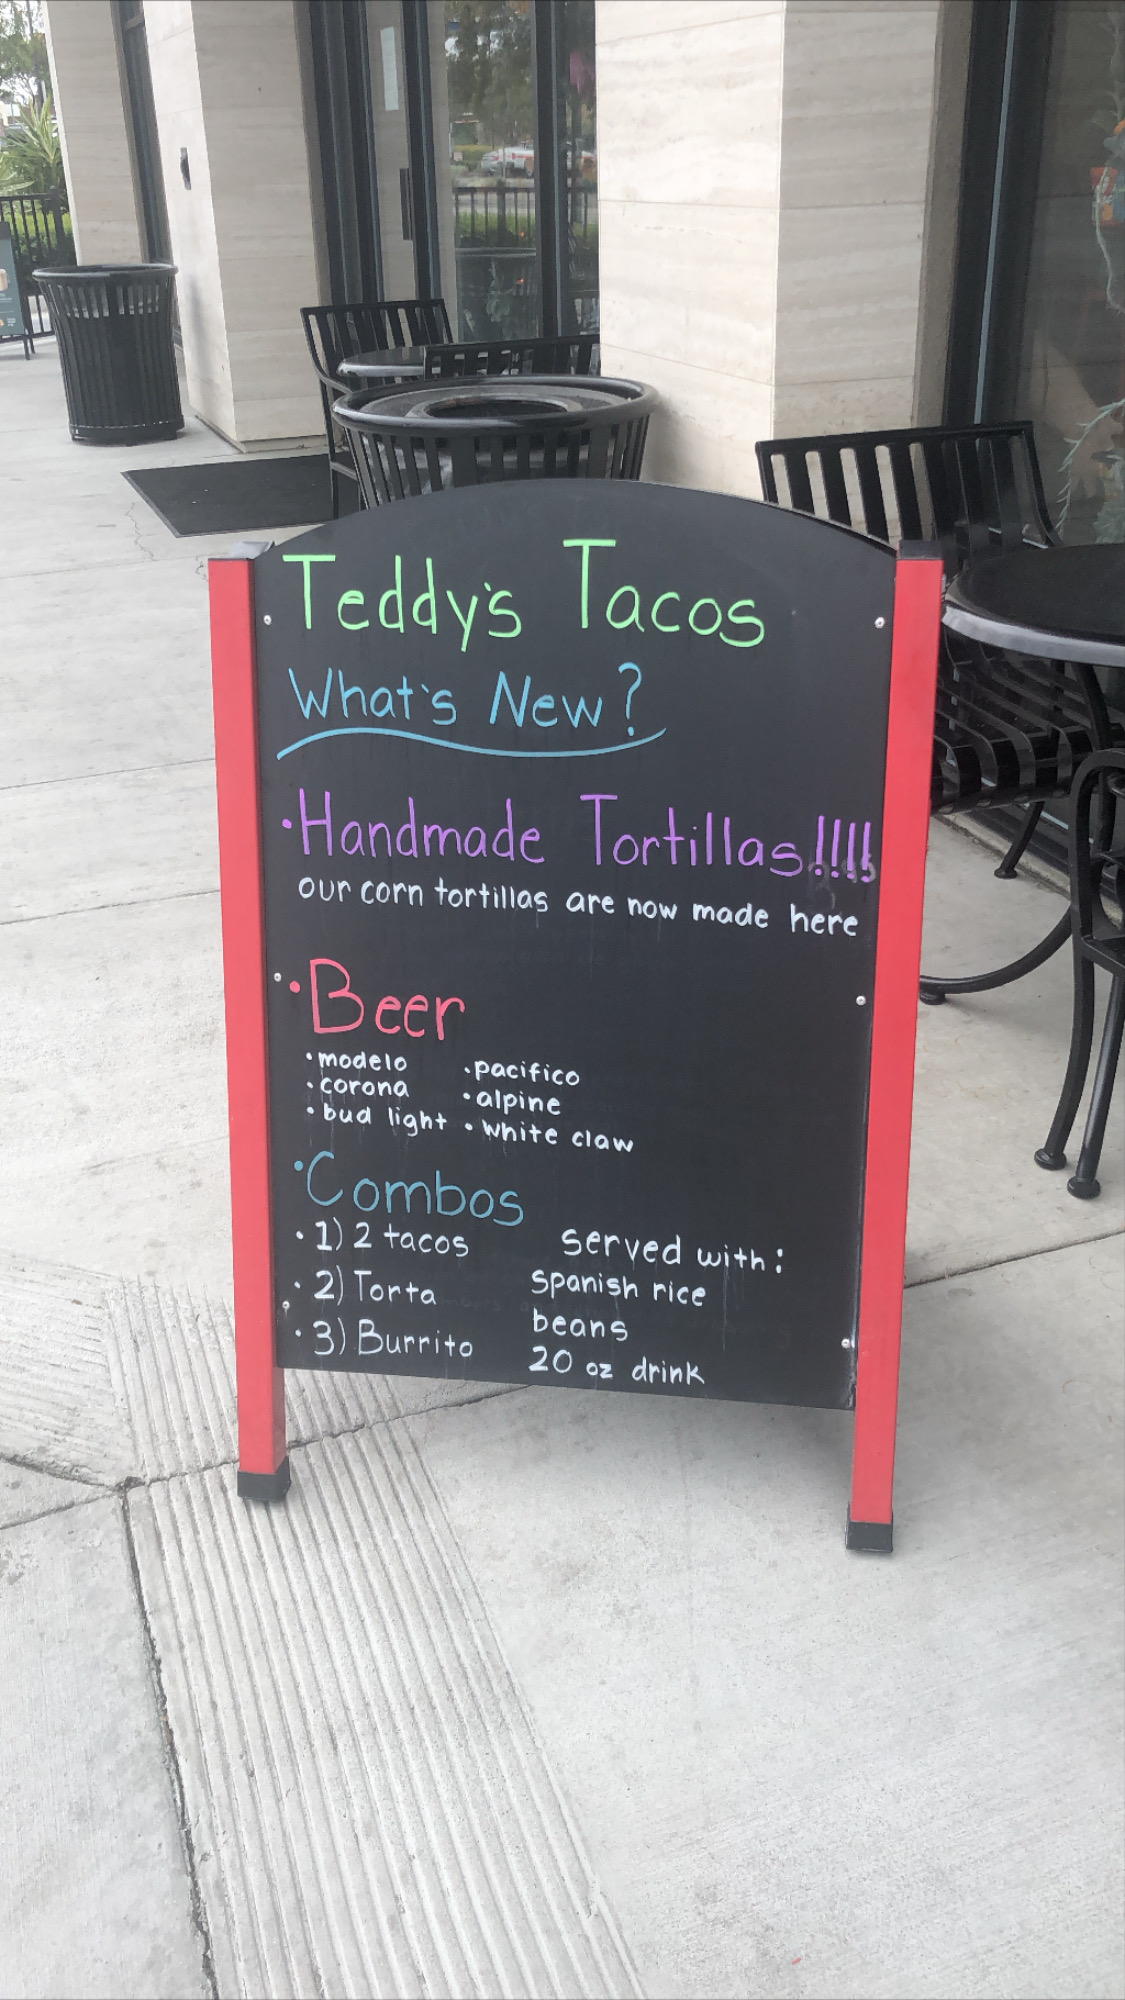 Teddy's Tacos
What's New?
•Handmade Tortillas!!!!
our corn tortillas are now made here
•Beer
•modelo
•corona
•bud light
•pacifico
•alpine
•white claw
•Combos
•1) 2 tacos
•2) Torta
•3) Burrito
served with:
Spanish rice
beans
20 oz drink